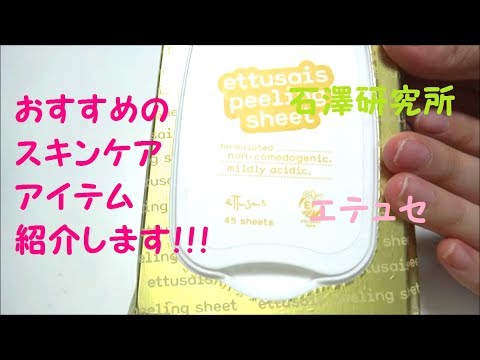 おすすめの
スキンケア
アイテム
紹介します!!!
石澤研究所
エテュセ
ettusais
peeling
sheet
formulated
non-comedogenic.
mildly acidic.
ettusais
45 sheets
ettusais
peeling sheet